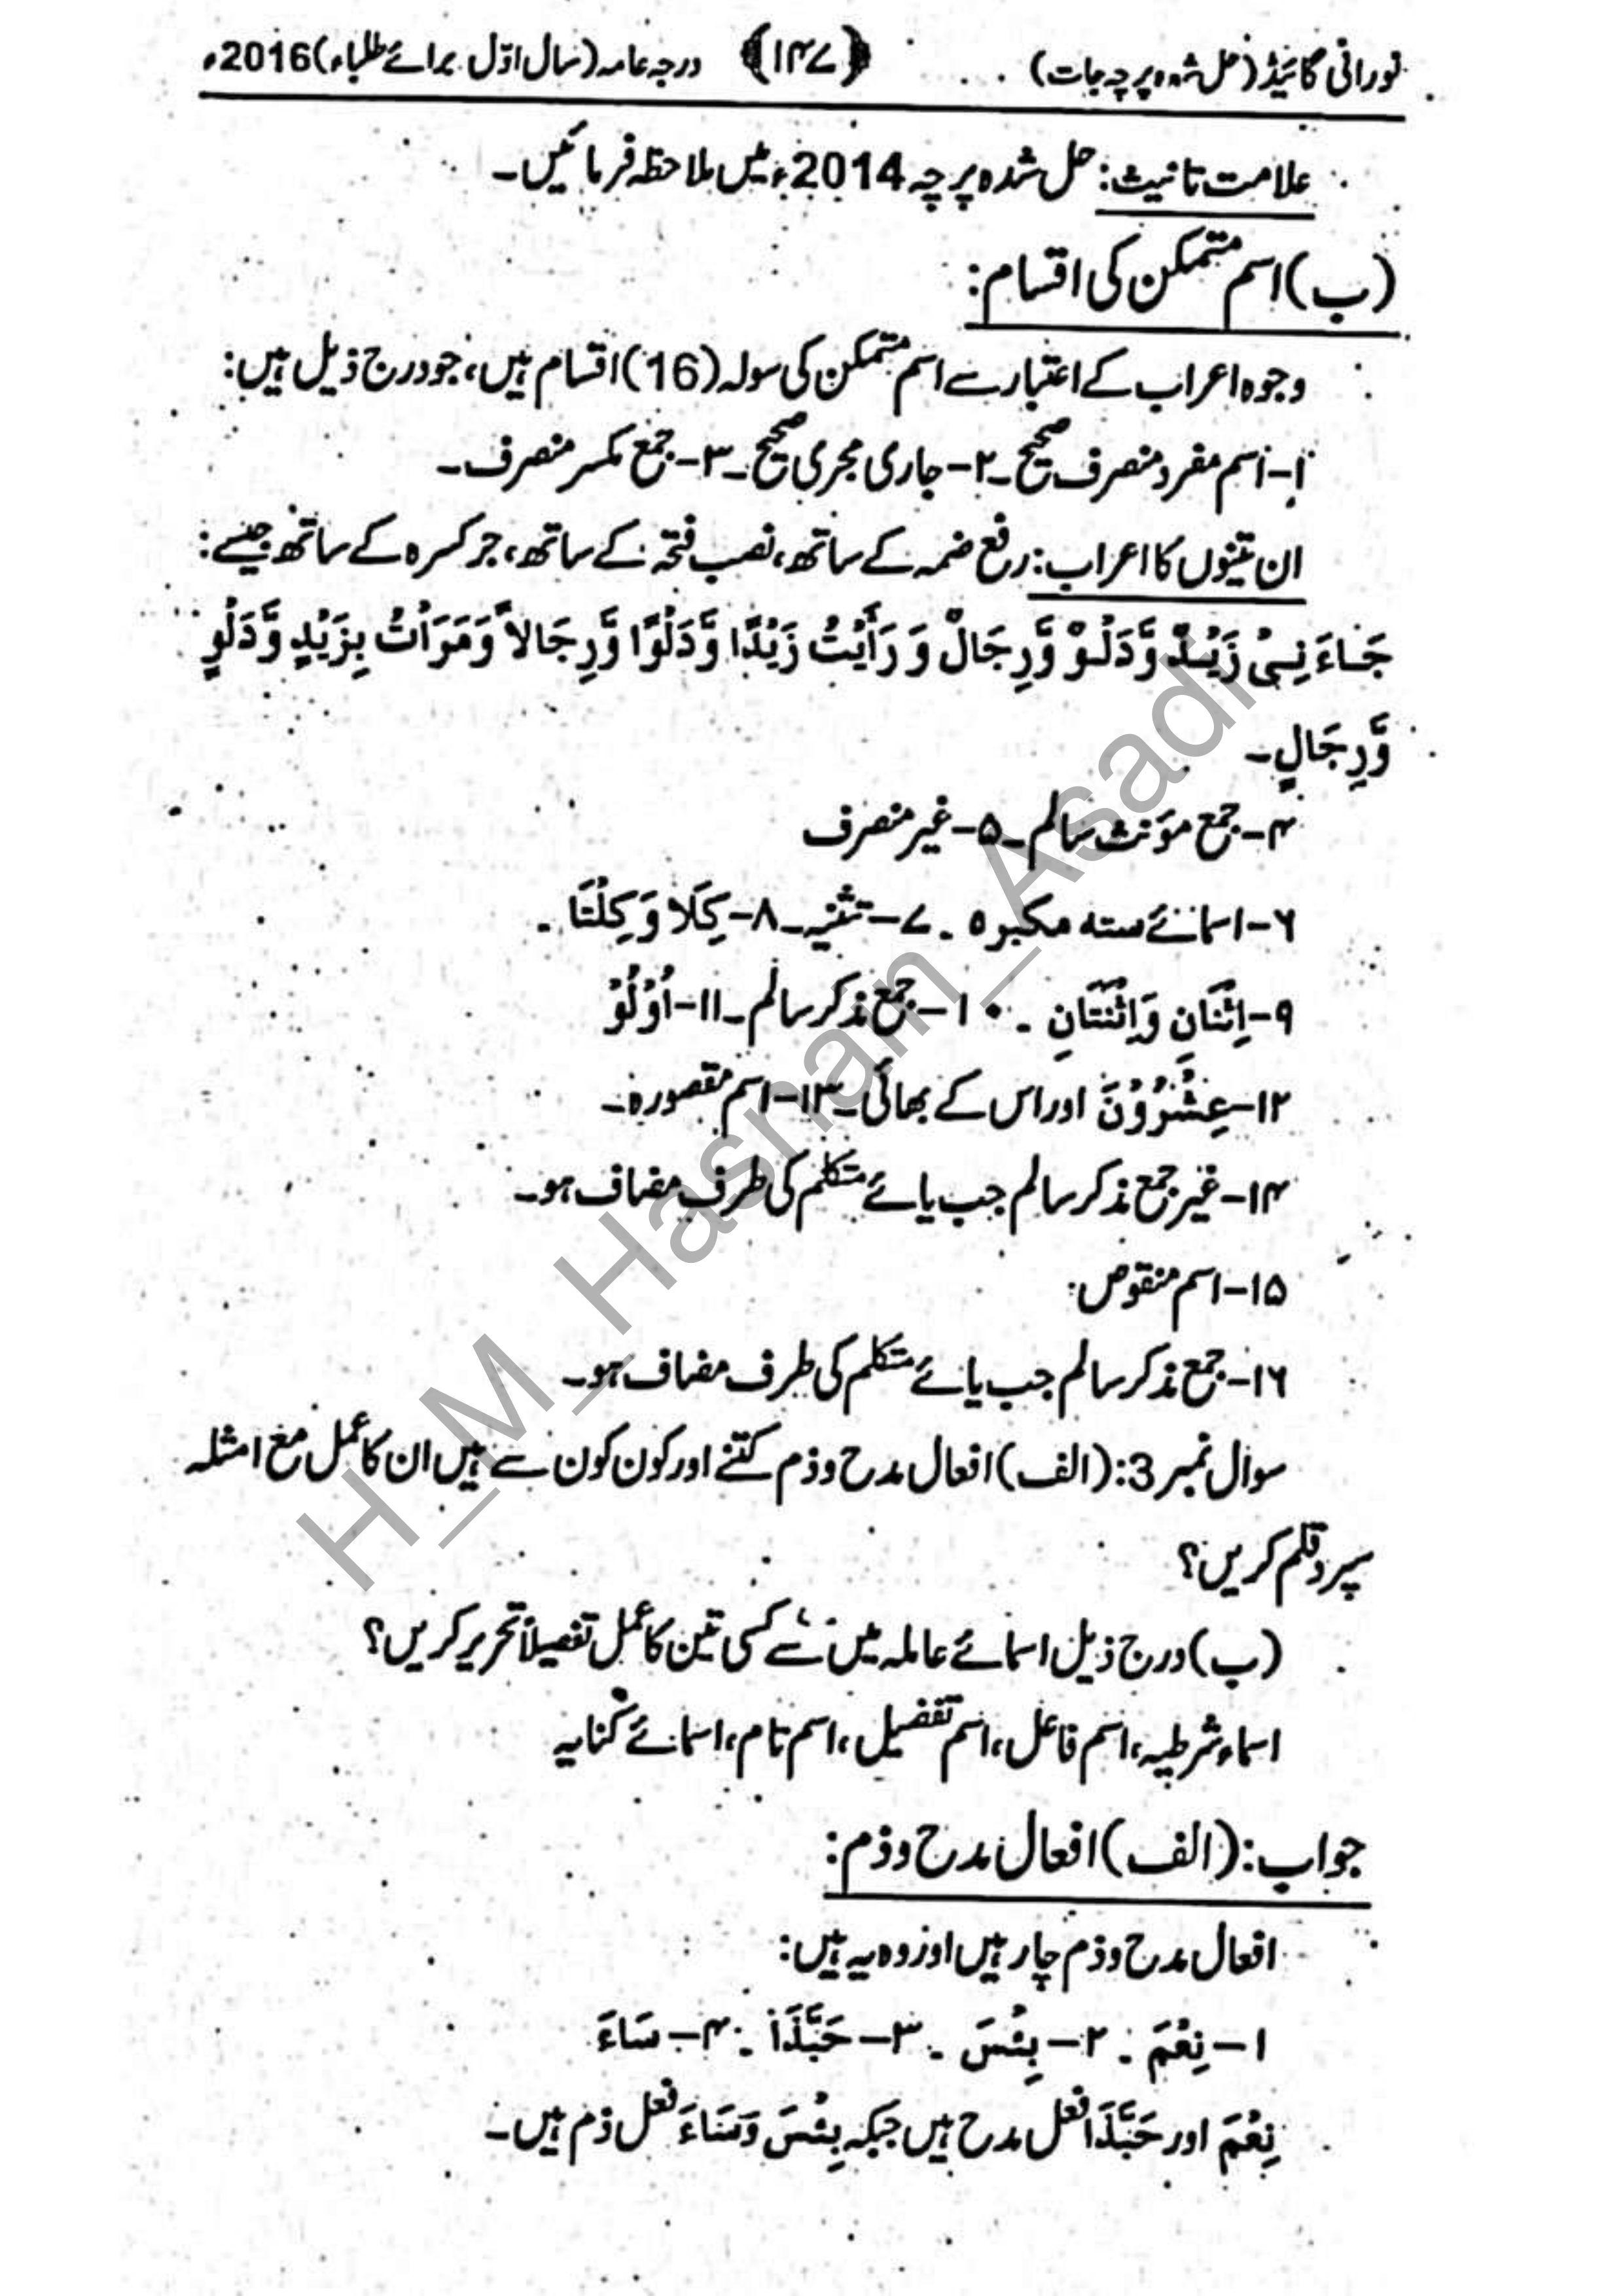 نورانی گائیڈ (حل شدہ پرچہ جات) ﴿۱۴۷﴾ درجہ عامہ (سال اوّل برائے طلباء) 2016ء
علامت تانیث: حل شدہ پرچہ 2014ء میں ملاحظہ فرمائیں۔
(ب) اسم متمکن کی اقسام:
وجوہ اعراب کے اعتبار سے اسم متمکن کی سولہ (16) اقسام ہیں، جو درج ذیل ہیں:
۱- اسم مفرد منصرف صحیح۔ ۲- جاری مجری صحیح۔ ۳- جمع مکسر منصرف۔
ان تینوں کا اعراب: رفع ضمہ کے ساتھ، نصب فتحہ کے ساتھ، جر کسرہ کے ساتھ جیسے:
جَاءَنِیْ زَیْدٌ وَّدَلْوٌ وَّرِجَالٌ وَ رَأَیْتُ زَیْدًا وَّدَلْوًا وَّرِجَالاً وَمَرَاتُ بِزَیْدٍ وَّدَلْوٍ
وَّرِجَالٍ۔
۴- جمع مؤنث سالم۔ ۵- غیر منصرف
۶- اسمائے ستہ مکبرہ۔ ۷- تثنیہ۔ ۸- کِلَا وَ کِلْتَا۔
۹- اِثْنَانِ وَاثْنَتَانِ۔ ۱۰- جمع مذکر سالم۔ ۱۱- اُوْلُوْ
۱۲- عِشْرُوْنَ اور اس کے بھائی۔ ۱۳- اسم مقصورہ۔
۱۴- غیر جمع مذکر سالم جب یائے متکلم کی طرف مضاف ہو۔
۱۵- اسم منقوص
۱۶- جمع مذکر سالم جب یائے متکلم کی طرف مضاف ہو۔
سوال نمبر 3: (الف) افعال مدح و ذم کتنے اور کون کون سے ہیں ان کا عمل مع امثلہ
سپرد قلم کریں؟
(ب) درج ذیل اسمائے عاملہ میں سے کسی تین کا عمل تفصیلاً تحریر کریں؟
اسماء شرطیہ، اسم فاعل، اسم تفضیل، اسم تام، اسمائے کنایہ
جواب: (الف) افعال مدح و ذم:
افعال مدح و ذم چار ہیں اور وہ یہ ہیں:
۱- نِعْمَ۔ ۲- بِئْسَ۔ ۳- حَبَّذَا۔ ۴- سَاءَ
نِعْمَ اور حَبَّذَا فعل مدح ہیں جبکہ بِئْسَ وَسَاءَ فعل ذم ہیں۔
H_M_Hasnan_Asadi